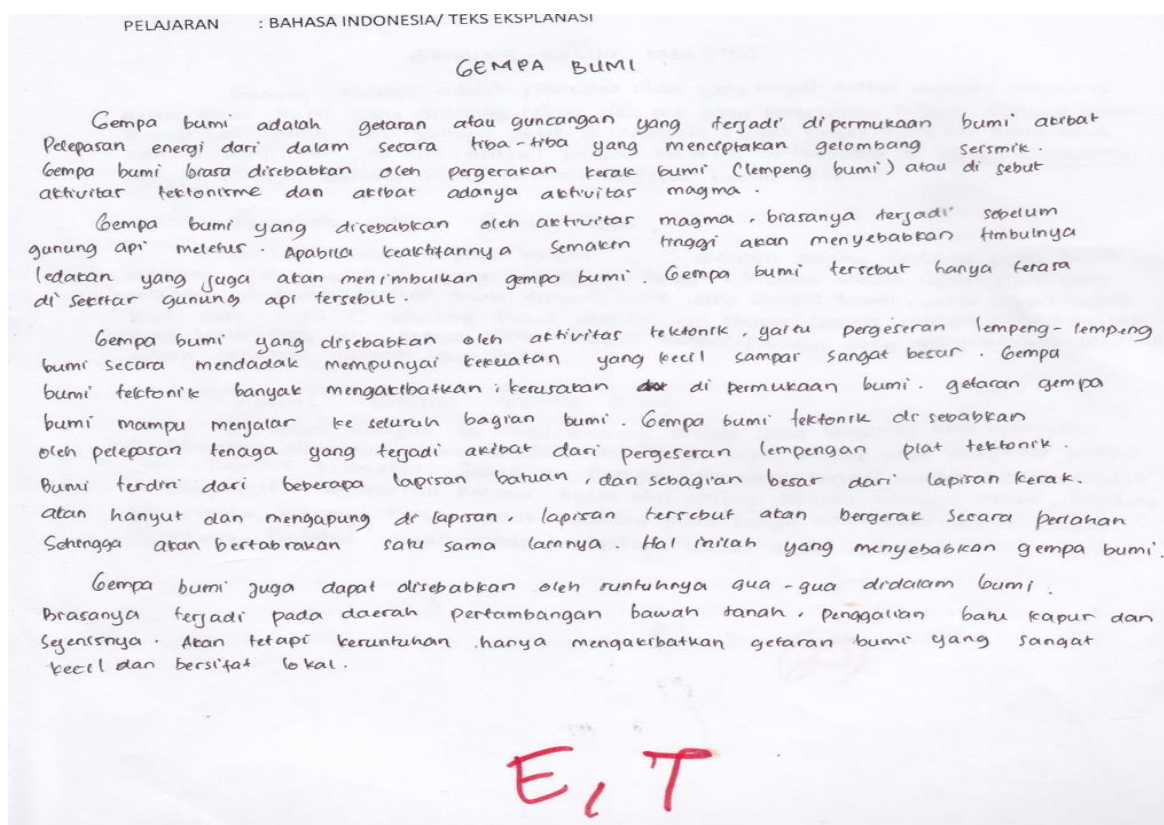 PELAJARAN : BAHASA INDONESIA/ TEKS EKSPLANASI
GEMPA BUMI
Gempa bumi adalah getaran atau guncangan yang terjadi di permukaan bumi akibat
Pelepasan energi dari dalam secara tiba-tiba yang menciptakan gelombang seismik.
Gempa bumi biasa disebabkan oleh pergerakan kerak bumi (lempeng bumi) atau di sebut
aktivitas tektonisme dan akibat adanya aktivitas magma.
Gempa bumi yang disebabkan oleh aktivitas magma, biasanya terjadi sebelum
gunung api meletus. Apabila keaktifannya semakin tinggi akan menyebabkan timbulnya
ledakan yang juga akan menimbulkan gempa bumi. Gempa bumi tersebut hanya terasa
di sekitar gunung api tersebut.
Gempa bumi yang disebabkan oleh aktivitas tektonik, yaitu pergeseran lempeng-lempeng
bumi secara mendadak mempunyai kekuatan yang kecil sampai sangat besar. Gempa
bumi tektonik banyak mengakibatkan kerusakan di permukaan bumi. getaran gempa
bumi mampu menjalar ke seluruh bagian bumi. Gempa bumi tektonik di sebabkan
oleh pelepasan tenaga yang terjadi akibat dari pergeseran lempengan plat tektonik.
Bumi terdiri dari beberapa lapisan batuan, dan sebagian besar dari lapisan kerak.
akan hanyut dan mengapung di lapisan, lapisan tersebut akan bergerak secara perlahan
Sehingga akan bertabrakan satu sama lainnya. Hal inilah yang menyebabkan gempa bumi.
Gempa bumi juga dapat disebabkan oleh runtuhnya gua-gua didalam bumi.
Biasanya terjadi pada daerah pertambangan bawah tanah, penggalian batu kapur dan
Sejenisnya. Akan tetapi keruntuhan hanya mengakibatkan getaran bumi yang sangat
kecil dan bersifat lokal.
E, T